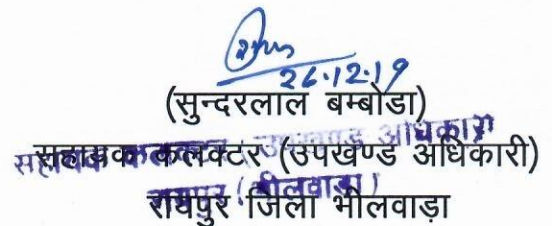 26.12.19
(सुन्दरलाल बम्बोडा)
सहायक कलक्टर (उपखण्ड अधिकारी)
रायपुर जिला भीलवाड़ा
सहायक कलक्टर (उपखण्ड अधिकारी)
रायपुर (भीलवाड़ा)